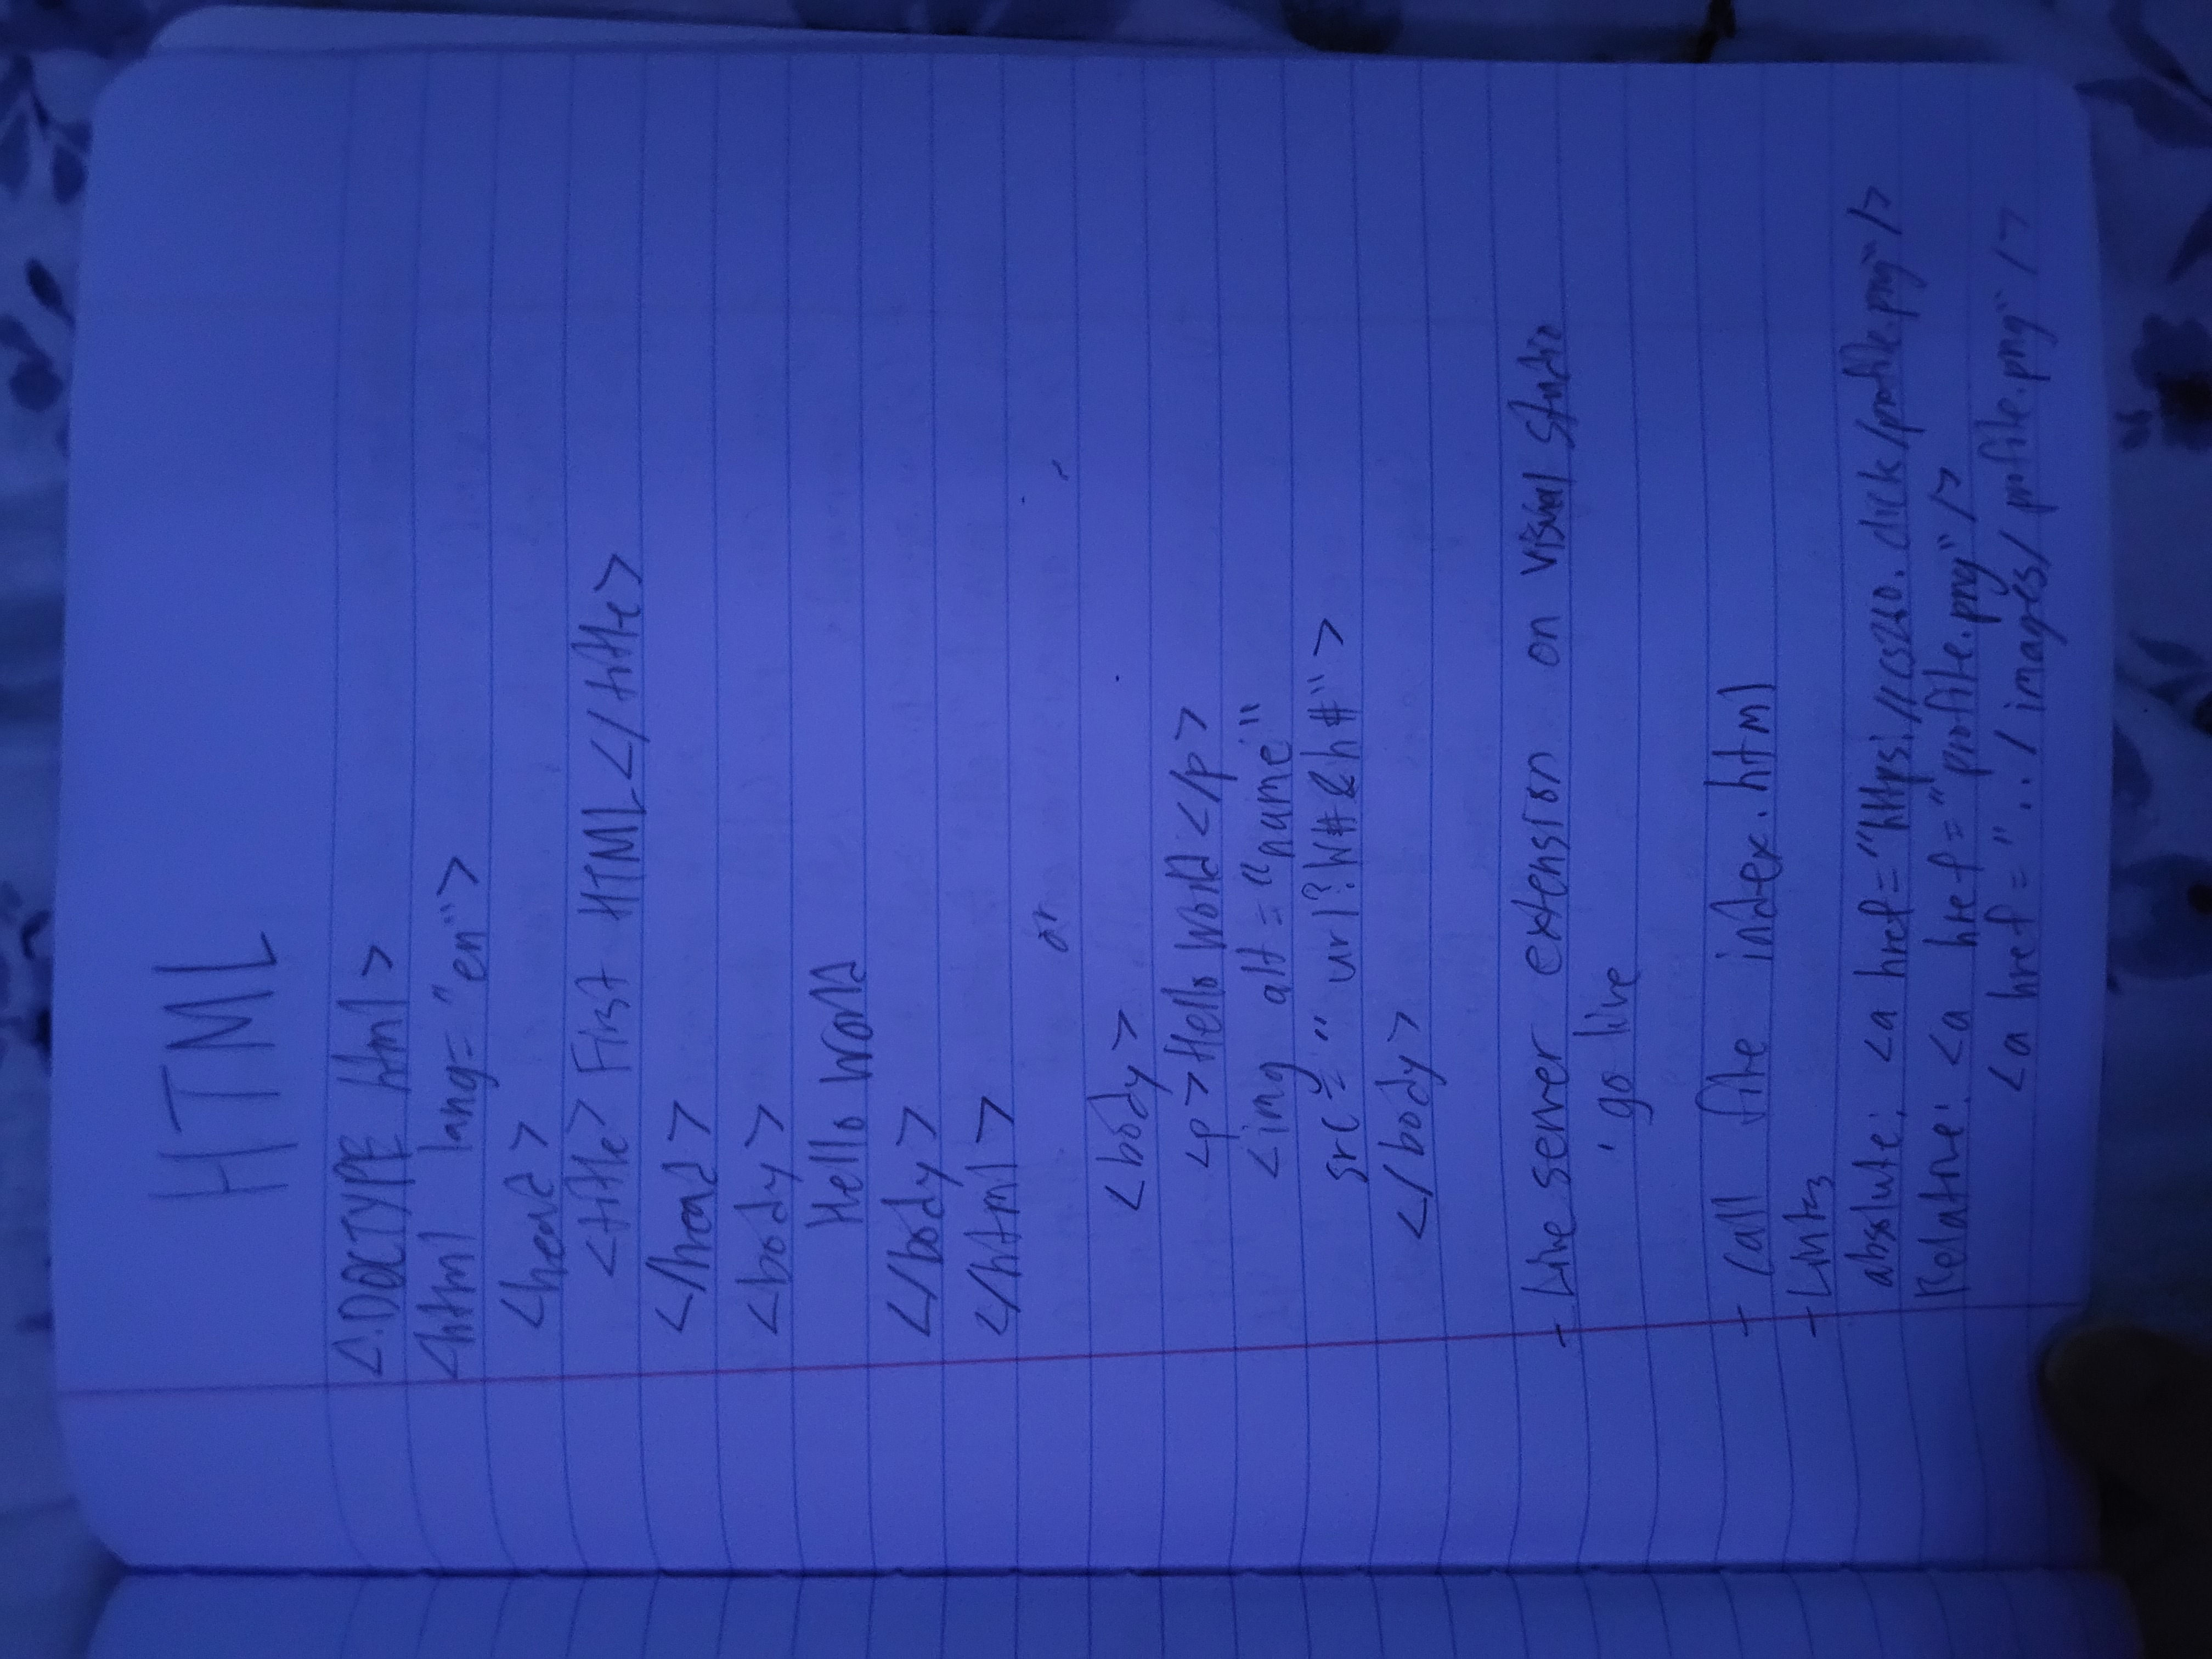 HTML
<!DOCTYPE html>
<html lang="en">
<head>
<title> First HTML</title>
</head>
<body>
Hello World
</body>
</html>
or
<body>
<p>Hello World</p>
<img alt="name"
src="url?W#&h#">
</body>
- Live server extension on Visual Studio
· go live
- Call file index.html
- Links
absolute: <a href="https://cs260.click/profile.png"/>
Relative: <a href="profile.png"/>
<a href="../images/profile.png"/>